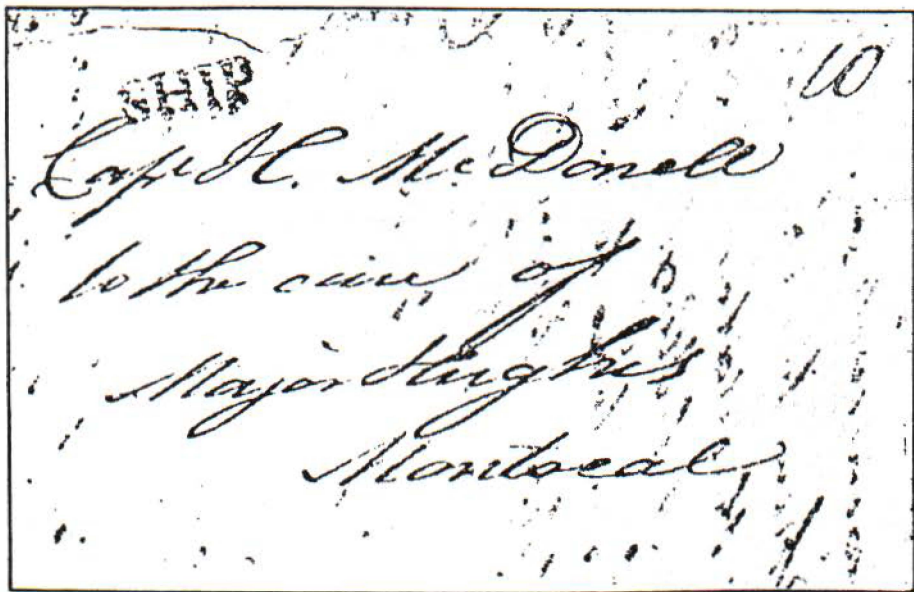 SHIP
10
Capt J C. Mc Donell
to the care of
Major Hughes
Montreal